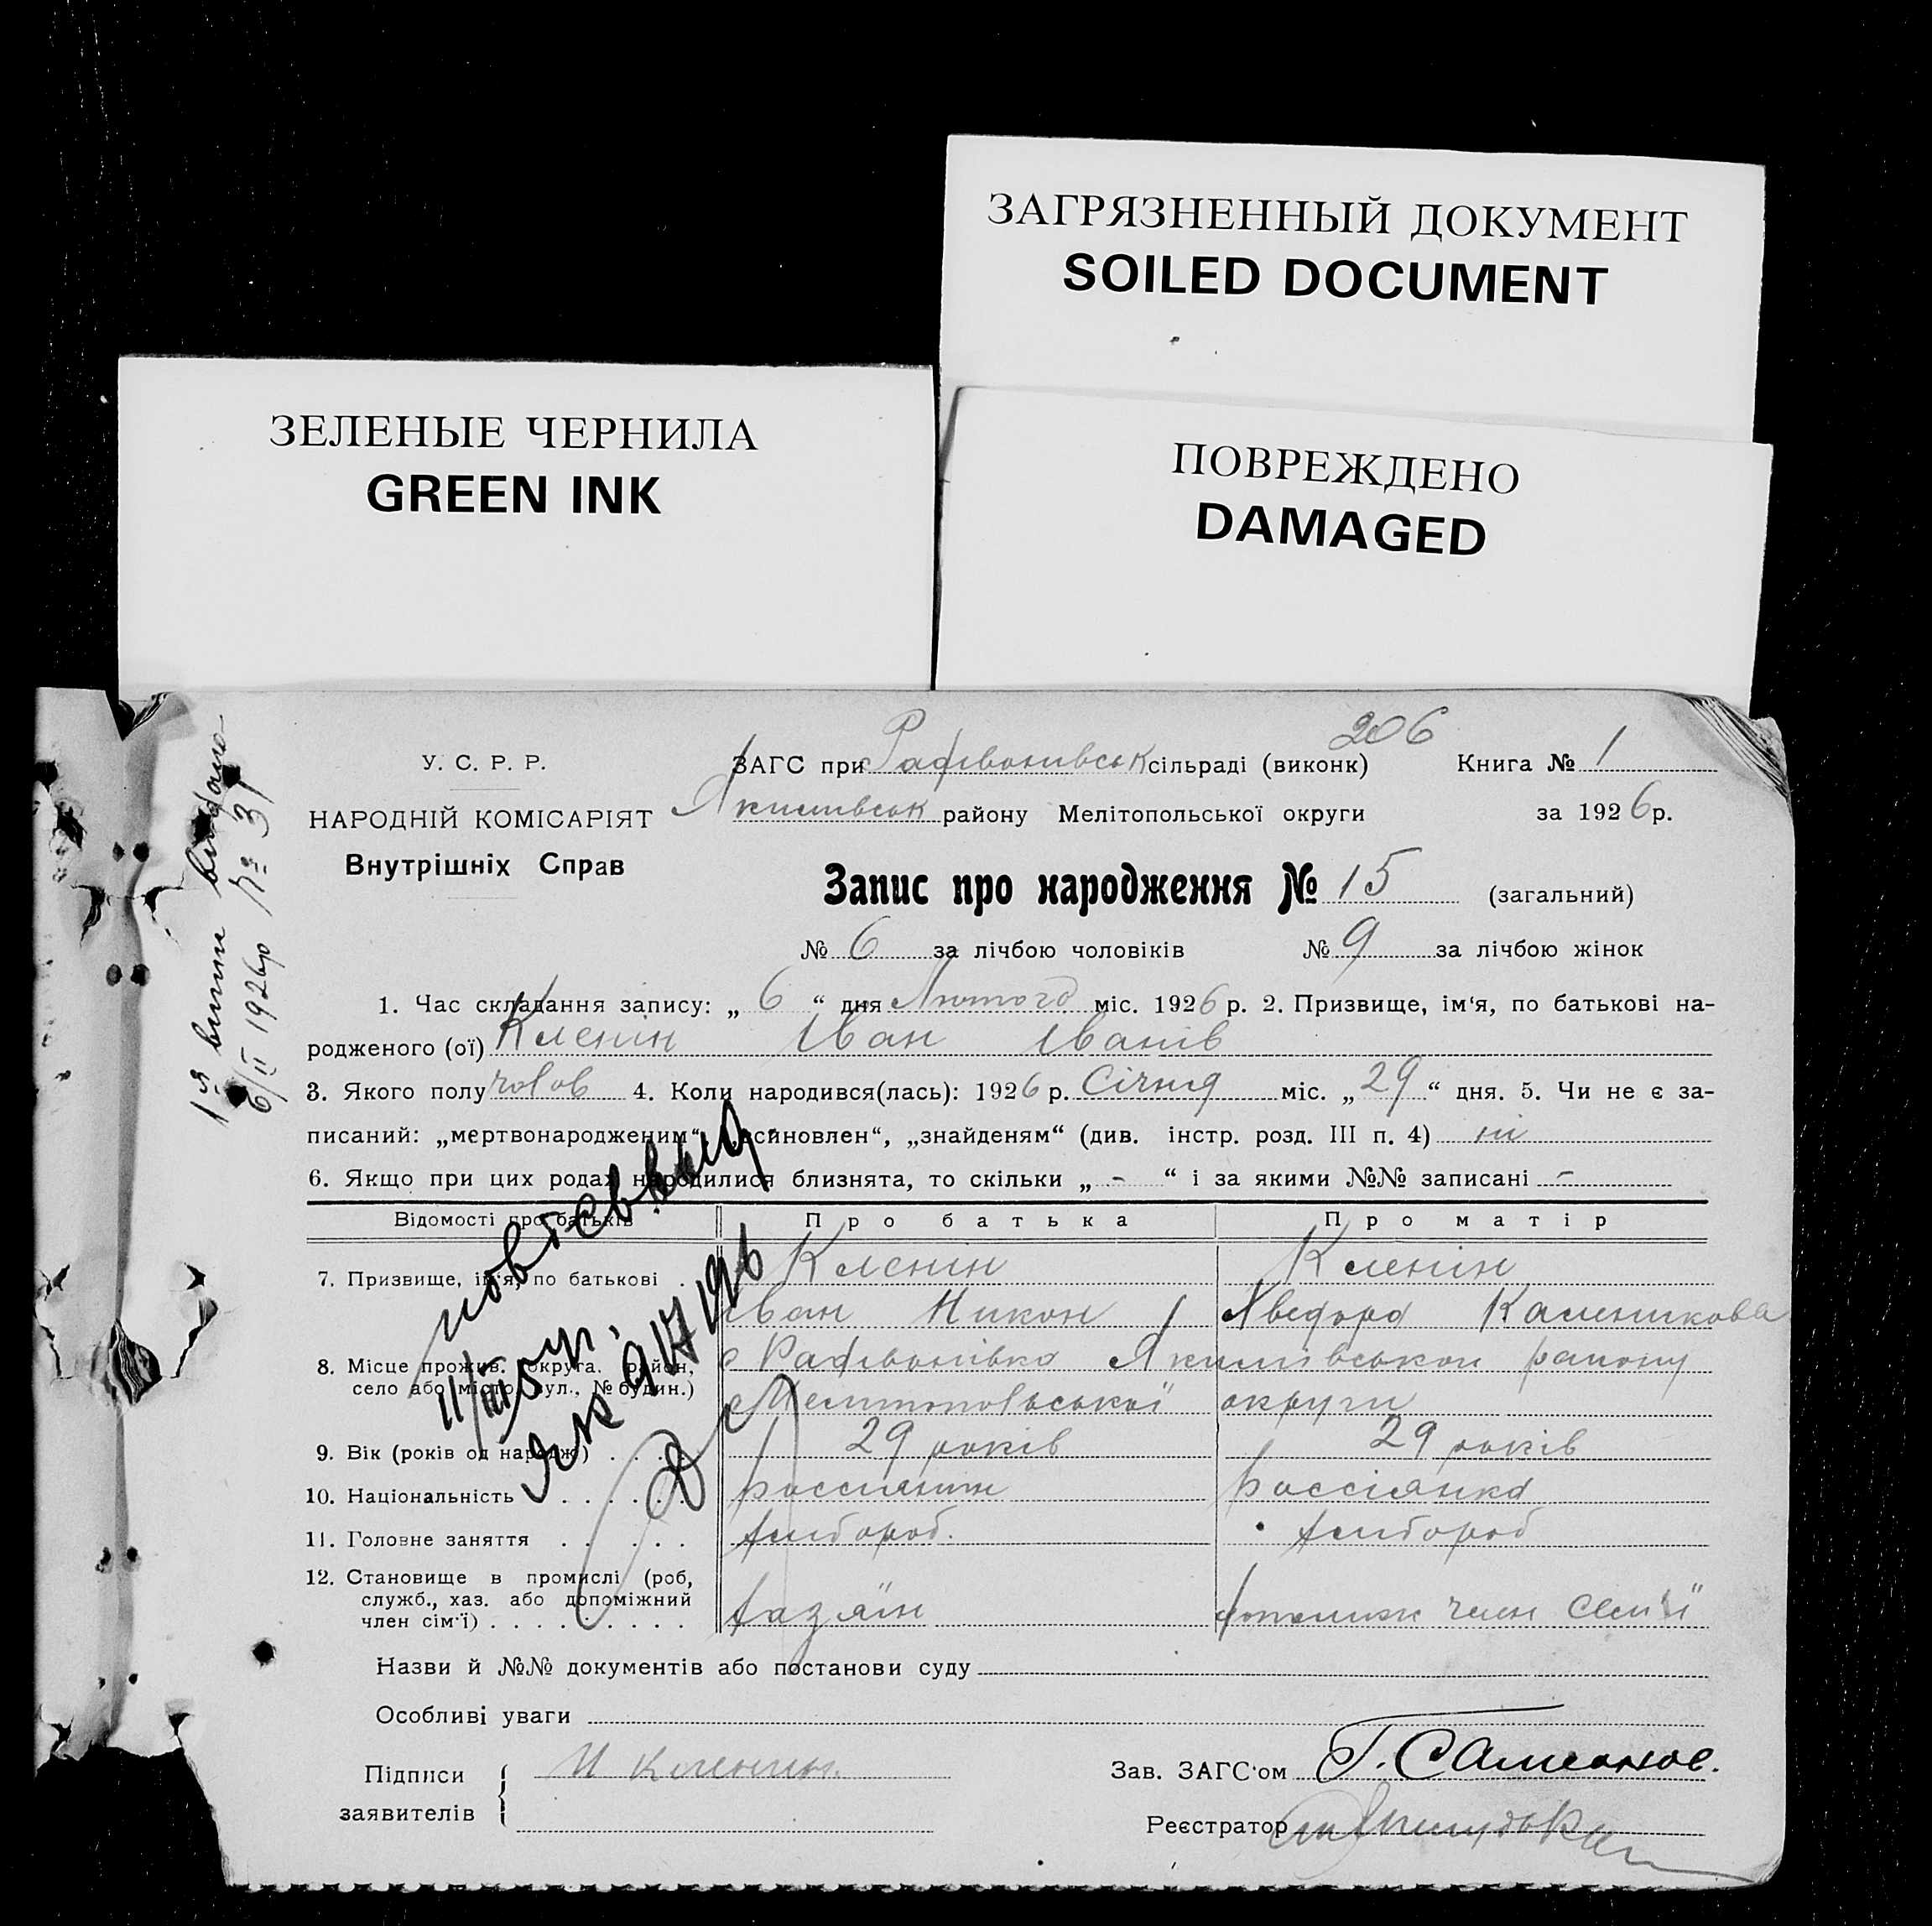 ЗАГРЯЗНЕННЫЙ ДОКУМЕНТ
SOILED DOCUMENT
ЗЕЛЕНЫЕ ЧЕРНИЛА
GREEN INK
ПОВРЕЖДЕНО
DAMAGED
206
У. С. Р. Р.
НАРОДНІЙ КОМІСАРІЯТ
Внутрішніх Справ
ЗАГС при сільраді (виконк) Книга № 1
Якимівськ району Мелітопольської округи за 1926 р.
Запис про народження № 15 (загальний)
№ 6 за лічбою чоловіків № 9 за лічбою жінок
1. Час складання запису: „ 6 “ дня Лютого міс. 1926 р. 2. Призвище, ім'я, по батькові на-
родженого (ої) Кленін Іван Іванів
3. Якого полу чолов 4. Коли народився(лась): 1926 р. Січня міс. „ 29 “ дня. 5. Чи не є за-
писаний: „мертвонародженим“, „всиновлен“, „знайденям“ (див. інстр. розд. III п. 4) ні
6. Якщо при цих родах народилися близнята, то скільки „ - “ і за якими №№ записані -
Відомості про батьків Про батька Про матір
7. Призвище, ім'я, по батькові . Кленін Кленін
Іван Никон Каленикова
8. Місце прожив. (округа, район,
село або місто, вул., № будин.)
Якимівськой району
Мелитопольської округи
9. Вік (років од народж.) . . . 29 років 29 років
10. Національність . . . . . . россиянин россіянка
11. Головне заняття . . . . . хлібороб. хлібороб
12. Становище в промислі (роб,
служб., хаз. або допоміжний
член сім'ї) . . . . . . . . . хазяїн допомиж член семʼї
Назви й №№ документів або постанови суду
Особливі уваги
Підписи
заявителів
И Кленин.
Зав. ЗАГС'ом Г. Самсонов.
Реєстратор
1я випис видано
6/II 1926р № 31